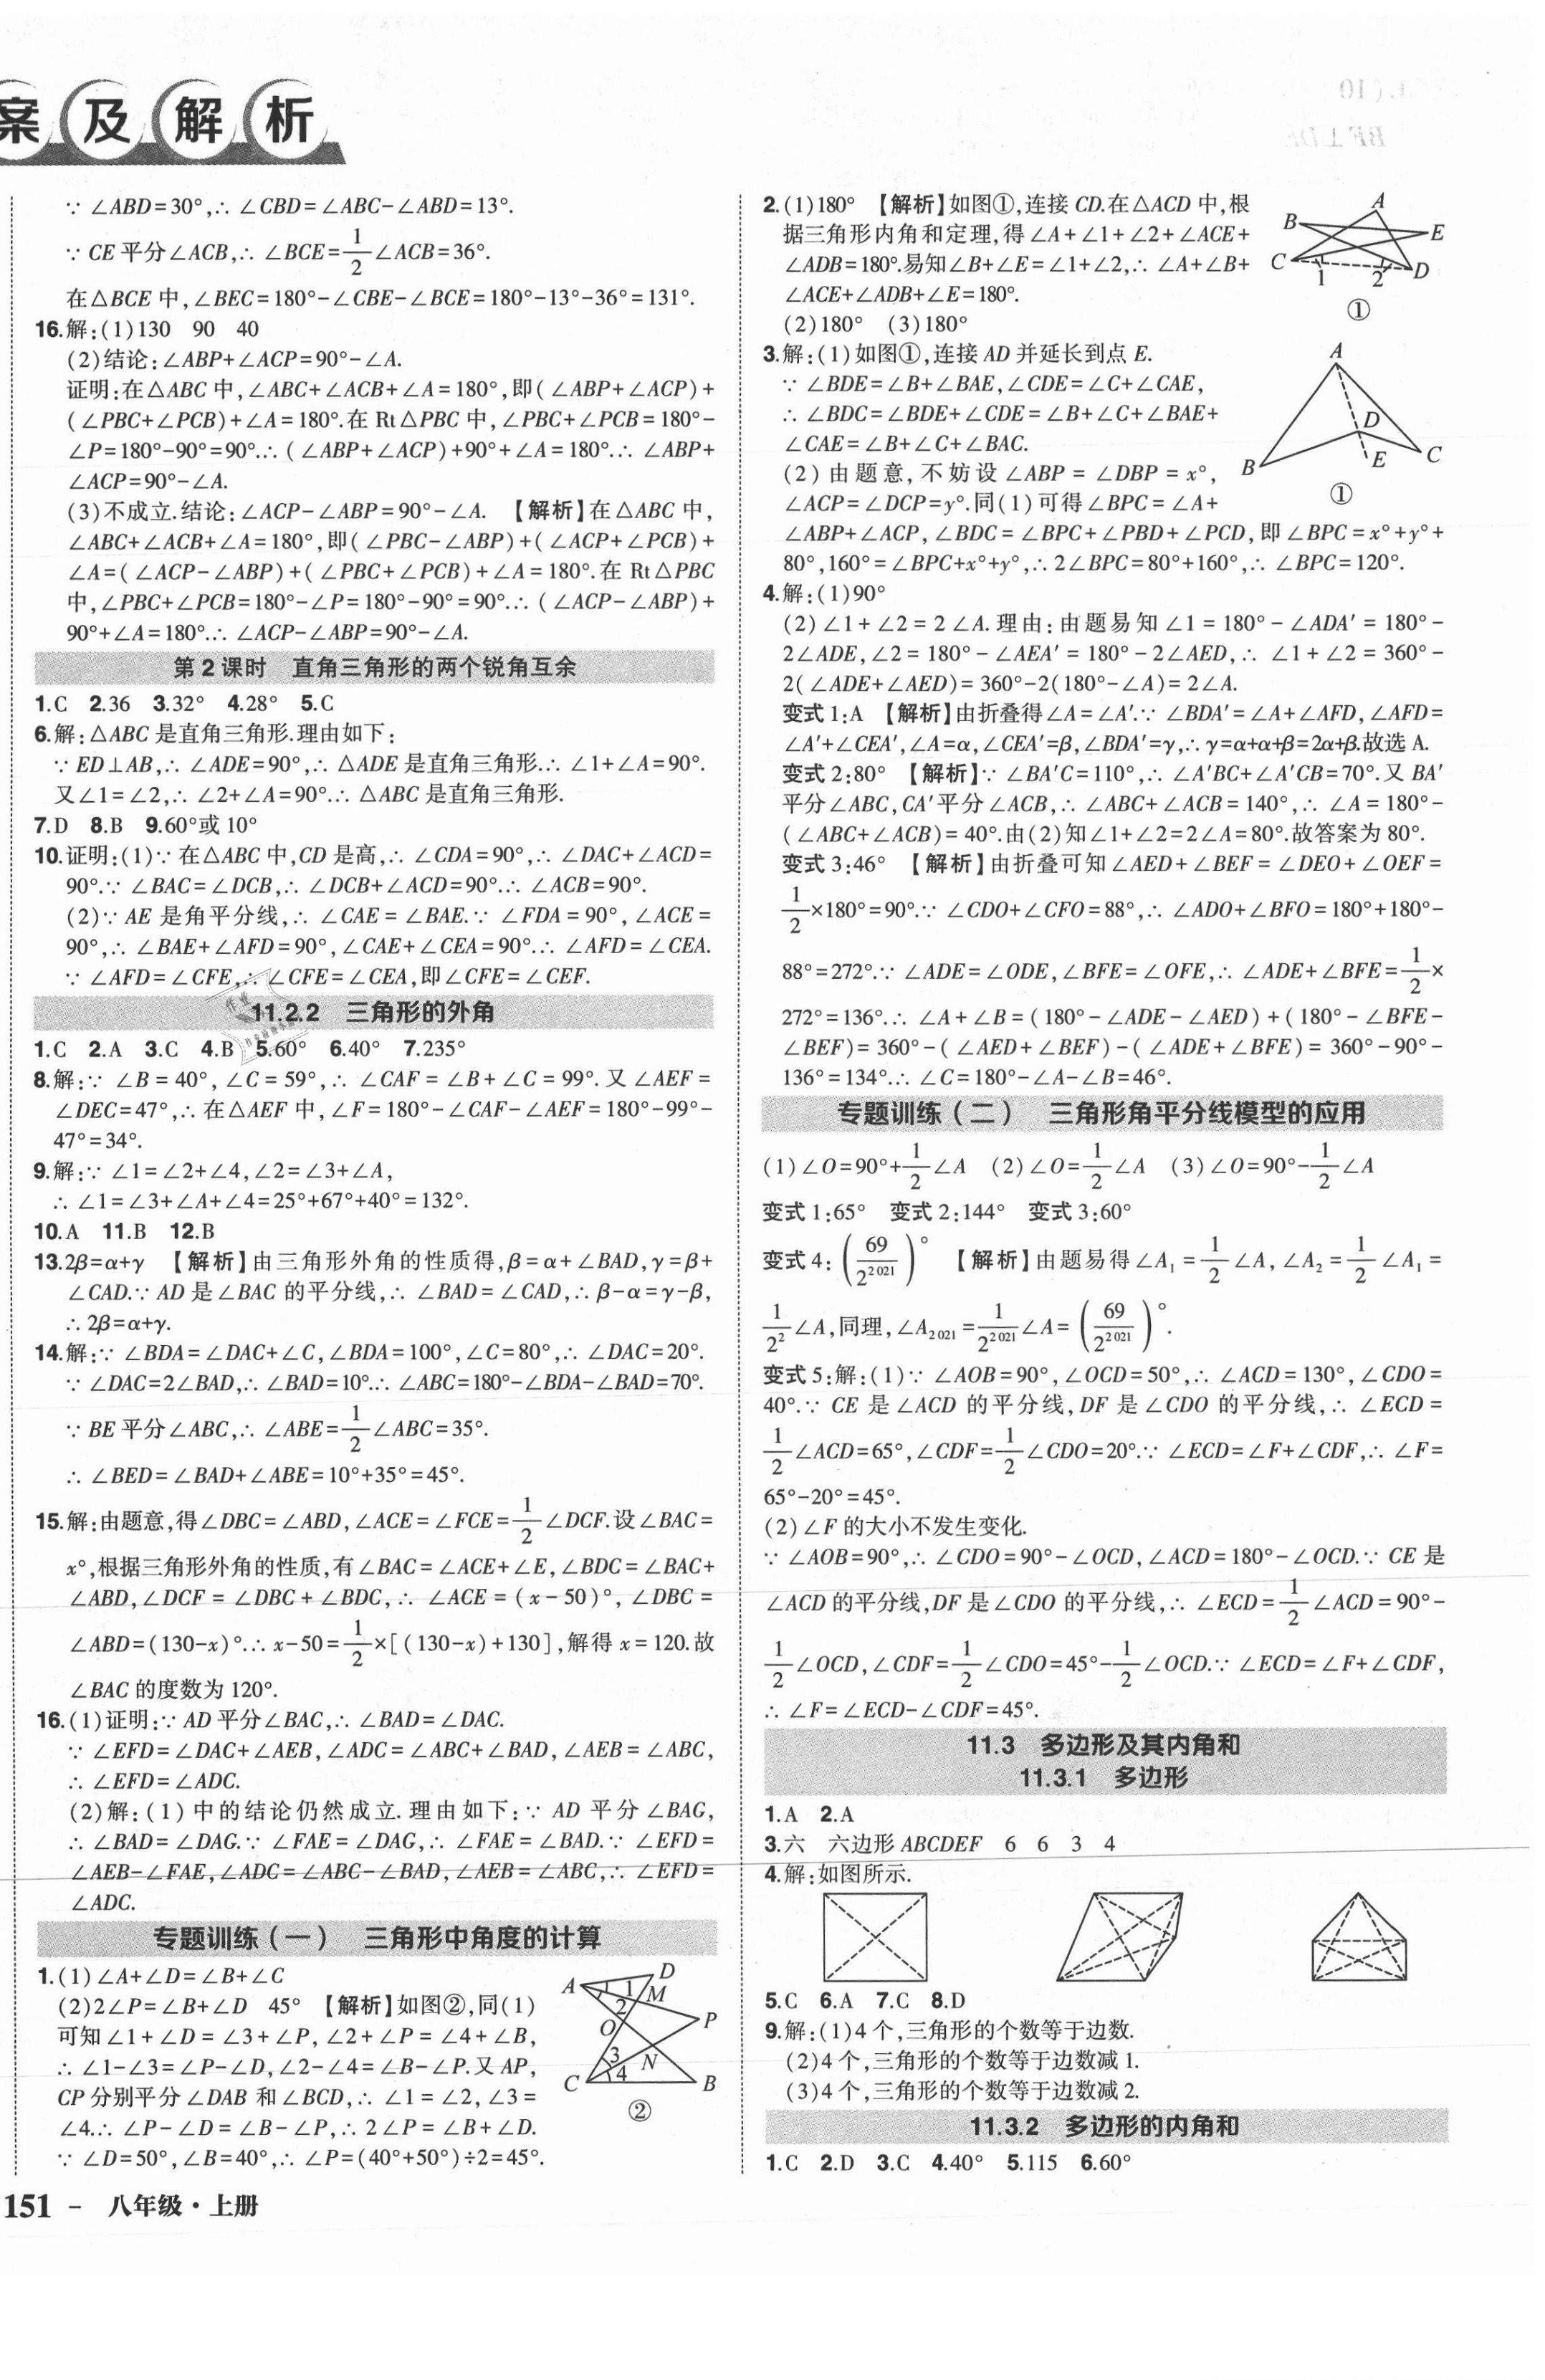 案及解析
∵ ∠ABD=30°,∴ ∠CBD=∠ABC-∠ABD=13°.
∵ CE 平分∠ACB,∴ ∠BCE=1/2∠ACB=36°.
在△BCE 中,∠BEC=180°-∠CBE-∠BCE=180°-13°-36°=131°.
16.解:(1)130 90 40
(2)结论:∠ABP+∠ACP=90°-∠A.
证明:在△ABC 中,∠ABC+∠ACB+∠A=180°,即(∠ABP+∠ACP)+
(∠PBC+∠PCB)+∠A=180°.在 Rt△PBC 中,∠PBC+∠PCB=180°-
∠P=180°-90°=90°.∴ (∠ABP+∠ACP)+90°+∠A=180°.∴ ∠ABP+
∠ACP=90°-∠A.
(3)不成立.结论:∠ACP-∠ABP=90°-∠A. 【解析】在△ABC 中,
∠ABC+∠ACB+∠A=180°,即(∠PBC-∠ABP)+(∠ACP+∠PCB)+
∠A=(∠ACP-∠ABP)+(∠PBC+∠PCB)+∠A=180°.在 Rt△PBC
中,∠PBC+∠PCB=180°-∠P=180°-90°=90°.∴ (∠ACP-∠ABP)+
90°+∠A=180°.∴ ∠ACP-∠ABP=90°-∠A.
第2课时 直角三角形的两个锐角互余
1.C 2.36 3.32° 4.28° 5.C
6.解:△ABC 是直角三角形.理由如下:
∵ ED⊥AB,∴ ∠ADE=90°,∴ △ADE 是直角三角形.∴ ∠1+∠A=90°.
又∠1=∠2,∴ ∠2+∠A=90°.∴ △ABC 是直角三角形.
7.D 8.B 9.60°或 10°
10.证明:(1)∵ 在△ABC 中,CD 是高,∴ ∠CDA=90°,∴ ∠DAC+∠ACD=
90°.∵ ∠BAC=∠DCB,∴ ∠DCB+∠ACD=90°.∴ ∠ACB=90°.
(2)∵ AE 是角平分线,∴ ∠CAE=∠BAE.∵ ∠FDA=90°,∠ACE=
90°,∴ ∠BAE+∠AFD=90°,∠CAE+∠CEA=90°.∴ ∠AFD=∠CEA.
∵ ∠AFD=∠CFE,∴ ∠CFE=∠CEA,即∠CFE=∠CEF.
11.2.2 三角形的外角
1.C 2.A 3.C 4.B 5.60° 6.40° 7.235°
8.解:∵ ∠B=40°,∠C=59°,∴ ∠CAF=∠B+∠C=99°.又∠AEF=
∠DEC=47°,∴ 在△AEF 中,∠F=180°-∠CAF-∠AEF=180°-99°-
47°=34°.
9.解:∵ ∠1=∠2+∠4,∠2=∠3+∠A,
∴ ∠1=∠3+∠A+∠4=25°+67°+40°=132°.
10.A 11.B 12.B
13.2β=α+γ 【解析】由三角形外角的性质得,β=α+∠BAD,γ=β+
∠CAD.∵ AD 是∠BAC 的平分线,∴ ∠BAD=∠CAD,∴ β-α=γ-β,
∴ 2β=α+γ.
14.解:∵ ∠BDA=∠DAC+∠C,∠BDA=100°,∠C=80°,∴ ∠DAC=20°.
∵ ∠DAC=2∠BAD,∴ ∠BAD=10°.∴ ∠ABC=180°-∠BDA-∠BAD=70°.
∵ BE 平分∠ABC,∴ ∠ABE=1/2∠ABC=35°.
∴ ∠BED=∠BAD+∠ABE=10°+35°=45°.
15.解:由题意,得∠DBC=∠ABD,∠ACE=∠FCE=1/2∠DCF.设∠BAC=
x°,根据三角形外角的性质,有∠BAC=∠ACE+∠E,∠BDC=∠BAC+
∠ABD,∠DCF=∠DBC+∠BDC,∴ ∠ACE=(x-50)°,∠DBC=
∠ABD=(130-x)°.∴ x-50=1/2×[(130-x)+130],解得 x=120.故
∠BAC 的度数为 120°.
16.(1)证明:∵ AD 平分∠BAC,∴ ∠BAD=∠DAC.
∵ ∠EFD=∠DAC+∠AEB,∠ADC=∠ABC+∠BAD,∠AEB=∠ABC,
∴ ∠EFD=∠ADC.
(2)解:(1)中的结论仍然成立.理由如下:∵ AD 平分∠BAG,
∴ ∠BAD=∠DAG.∵ ∠FAE=∠DAG,∴ ∠FAE=∠BAD.∵ ∠EFD=
∠AEB-∠FAE,∠ADC=∠ABC-∠BAD,∠AEB=∠ABC,∴ ∠EFD=
∠ADC.
专题训练(一) 三角形中角度的计算
1.(1)∠A+∠D=∠B+∠C
(2)2∠P=∠B+∠D 45° 【解析】如图②,同(1)
可知∠1+∠D=∠3+∠P,∠2+∠P=∠4+∠B,
∴ ∠1-∠3=∠P-∠D,∠2-∠4=∠B-∠P.又 AP,
CP 分别平分∠DAB 和∠BCD,∴ ∠1=∠2,∠3=
∠4.∴ ∠P-∠D=∠B-∠P,∴ 2∠P=∠B+∠D.
∵ ∠D=50°,∠B=40°,∴ ∠P=(40°+50°)÷2=45°.
A D 1 M 2 O P 3 N 4 C B
②
151 - 八年级·上册
2.(1)180° 【解析】如图①,连接 CD.在△ACD 中,根
据三角形内角和定理,得∠A+∠1+∠2+∠ACE+
∠ADB=180°.易知∠B+∠E=∠1+∠2,∴ ∠A+∠B+
∠ACE+∠ADB+∠E=180°.
(2)180° (3)180°
A B E C 1 2 D
①
3.解:(1)如图①,连接 AD 并延长到点 E.
∵ ∠BDE=∠B+∠BAE,∠CDE=∠C+∠CAE,
∴ ∠BDC=∠BDE+∠CDE=∠B+∠C+∠BAE+
∠CAE=∠B+∠C+∠BAC.
(2)由题意,不妨设∠ABP=∠DBP=x°,
∠ACP=∠DCP=y°.同(1)可得∠BPC=∠A+
∠ABP+∠ACP,∠BDC=∠BPC+∠PBD+∠PCD,即∠BPC=x°+y°+
80°,160°=∠BPC+x°+y°,∴ 2∠BPC=80°+160°,∴ ∠BPC=120°.
A D B E C
①
4.解:(1)90°
(2)∠1+∠2=2∠A.理由:由题易知∠1=180°-∠ADA′=180°-
2∠ADE,∠2=180°-∠AEA′=180°-2∠AED,∴ ∠1+∠2=360°-
2(∠ADE+∠AED)=360°-2(180°-∠A)=2∠A.
变式1:A 【解析】由折叠得∠A=∠A′.∵ ∠BDA′=∠A+∠AFD,∠AFD=
∠A′+∠CEA′,∠A=α,∠CEA′=β,∠BDA′=γ,∴ γ=α+α+β=2α+β.故选 A.
变式2:80° 【解析】∵ ∠BA′C=110°,∴ ∠A′BC+∠A′CB=70°.又 BA′
平分∠ABC,CA′平分∠ACB,∴ ∠ABC+∠ACB=140°,∴ ∠A=180°-
(∠ABC+∠ACB)=40°.由(2)知∠1+∠2=2∠A=80°.故答案为 80°.
变式3:46° 【解析】由折叠可知∠AED+∠BEF=∠DEO+∠OEF=
1/2×180°=90°.∵ ∠CDO+∠CFO=88°,∴ ∠ADO+∠BFO=180°+180°-
88°=272°.∵ ∠ADE=∠ODE,∠BFE=∠OFE,∴ ∠ADE+∠BFE=1/2×
272°=136°.∴ ∠A+∠B=(180°-∠ADE-∠AED)+(180°-∠BFE-
∠BEF)=360°-(∠AED+∠BEF)-(∠ADE+∠BFE)=360°-90°-
136°=134°.∴ ∠C=180°-∠A-∠B=46°.
专题训练(二) 三角形角平分线模型的应用
(1)∠O=90°+1/2∠A (2)∠O=1/2∠A (3)∠O=90°-1/2∠A
变式1:65° 变式2:144° 变式3:60°
变式4:(69/2²⁰²¹)° 【解析】由题易得∠A₁=1/2∠A,∠A₂=1/2∠A₁=
1/2²∠A,同理,∠A₂₀₂₁=1/2²⁰²¹∠A=(69/2²⁰²¹)°.
变式5:解:(1)∵ ∠AOB=90°,∠OCD=50°,∴ ∠ACD=130°,∠CDO=
40°.∵ CE 是∠ACD 的平分线,DF 是∠CDO 的平分线,∴ ∠ECD=
1/2∠ACD=65°,∠CDF=1/2∠CDO=20°.∵ ∠ECD=∠F+∠CDF,∴ ∠F=
65°-20°=45°.
(2)∠F 的大小不发生变化.
∵ ∠AOB=90°,∴ ∠CDO=90°-∠OCD,∠ACD=180°-∠OCD.∵ CE 是
∠ACD 的平分线,DF 是∠CDO 的平分线,∴ ∠ECD=1/2∠ACD=90°-
1/2∠OCD,∠CDF=1/2∠CDO=45°-1/2∠OCD.∵ ∠ECD=∠F+∠CDF,
∴ ∠F=∠ECD-∠CDF=45°.
11.3 多边形及其内角和
11.3.1 多边形
1.A 2.A
3.六 六边形 ABCDEF 6 6 3 4
4.解:如图所示.
5.C 6.A 7.C 8.D
9.解:(1)4 个,三角形的个数等于边数.
(2)4 个,三角形的个数等于边数减 1.
(3)4 个,三角形的个数等于边数减 2.
11.3.2 多边形的内角和
1.C 2.D 3.C 4.40° 5.115 6.60°